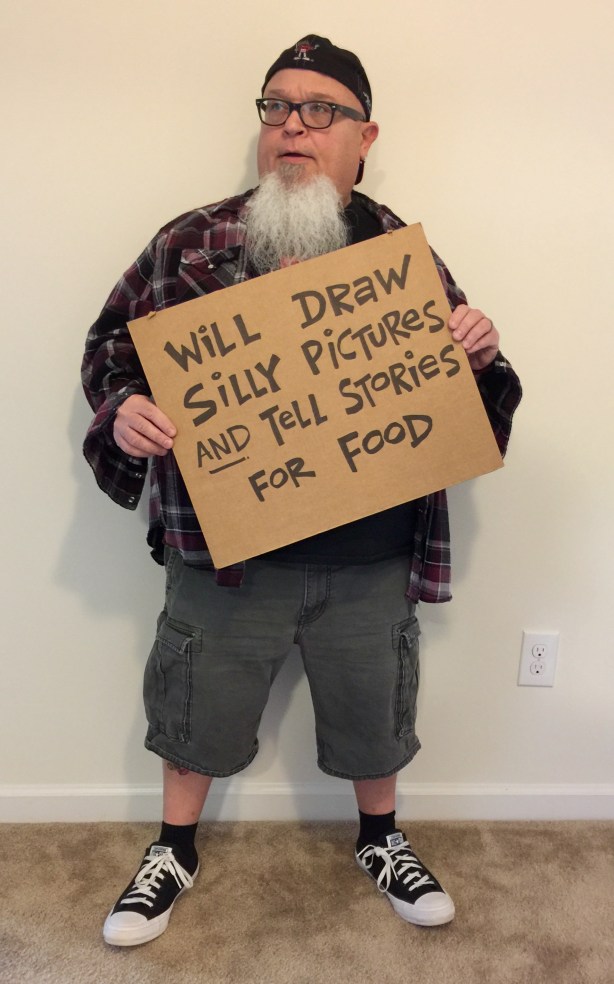 WiLL DRaW
SiLLY PiCTURES
AND TeLL STORiES
FOR FOOD